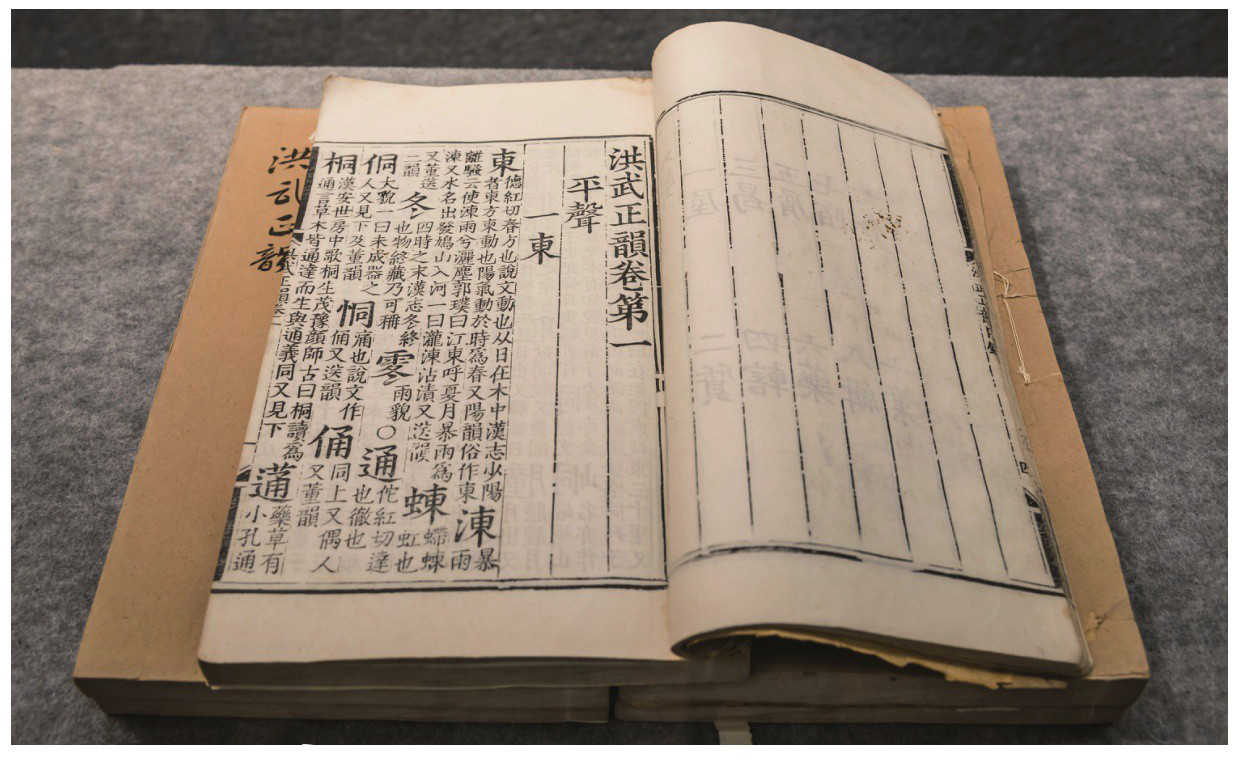 洪武正韻卷第一
平聲
一東
東德紅切春方也說文動也从日在木中漢志少陽
者東方東動也陽氣動於時為春又陽韻俗作東涷暴雨
離騷云使涷雨兮灑塵郭璞曰江東呼夏月暴雨為
涷又水名出發鳩山入河一曰瀧涷沾漬又送韻蝀螮蝀虹也
又董送二韻冬四時之末漢志冬終也物終藏乃可稱零雨貌○通佗紅切達也徹也
侗大貌一曰未成器之人又見下及董韻恫痛也說文作痌又送韻俑同上又偶人又董韻
桐漢安世房中歌桐生茂豫顏師古曰桐讀為通言草木皆通達而生與通義同又見下蓪藥草有小孔通
洪武正韻卷一
洪武正韻